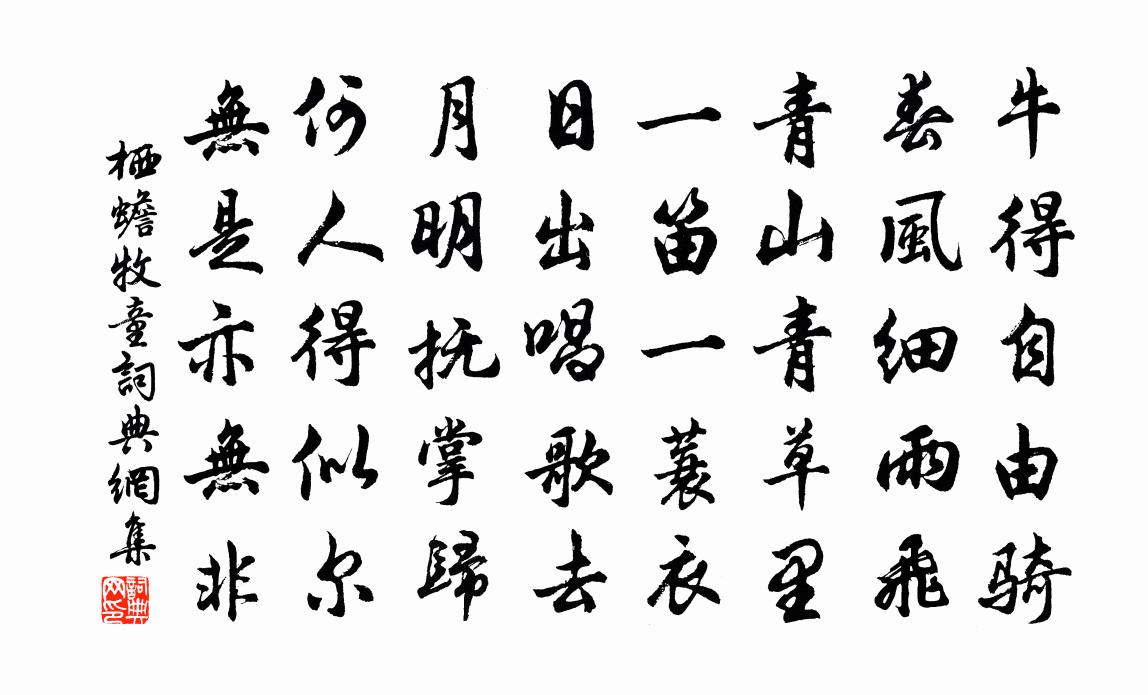 牛得自由騎
春風細雨飛
青山青草里
一笛一蓑衣
日出唱歌去
月明抚掌歸
何人得似尔
無是亦無非
栖蟾牧童詞典網集
詞典